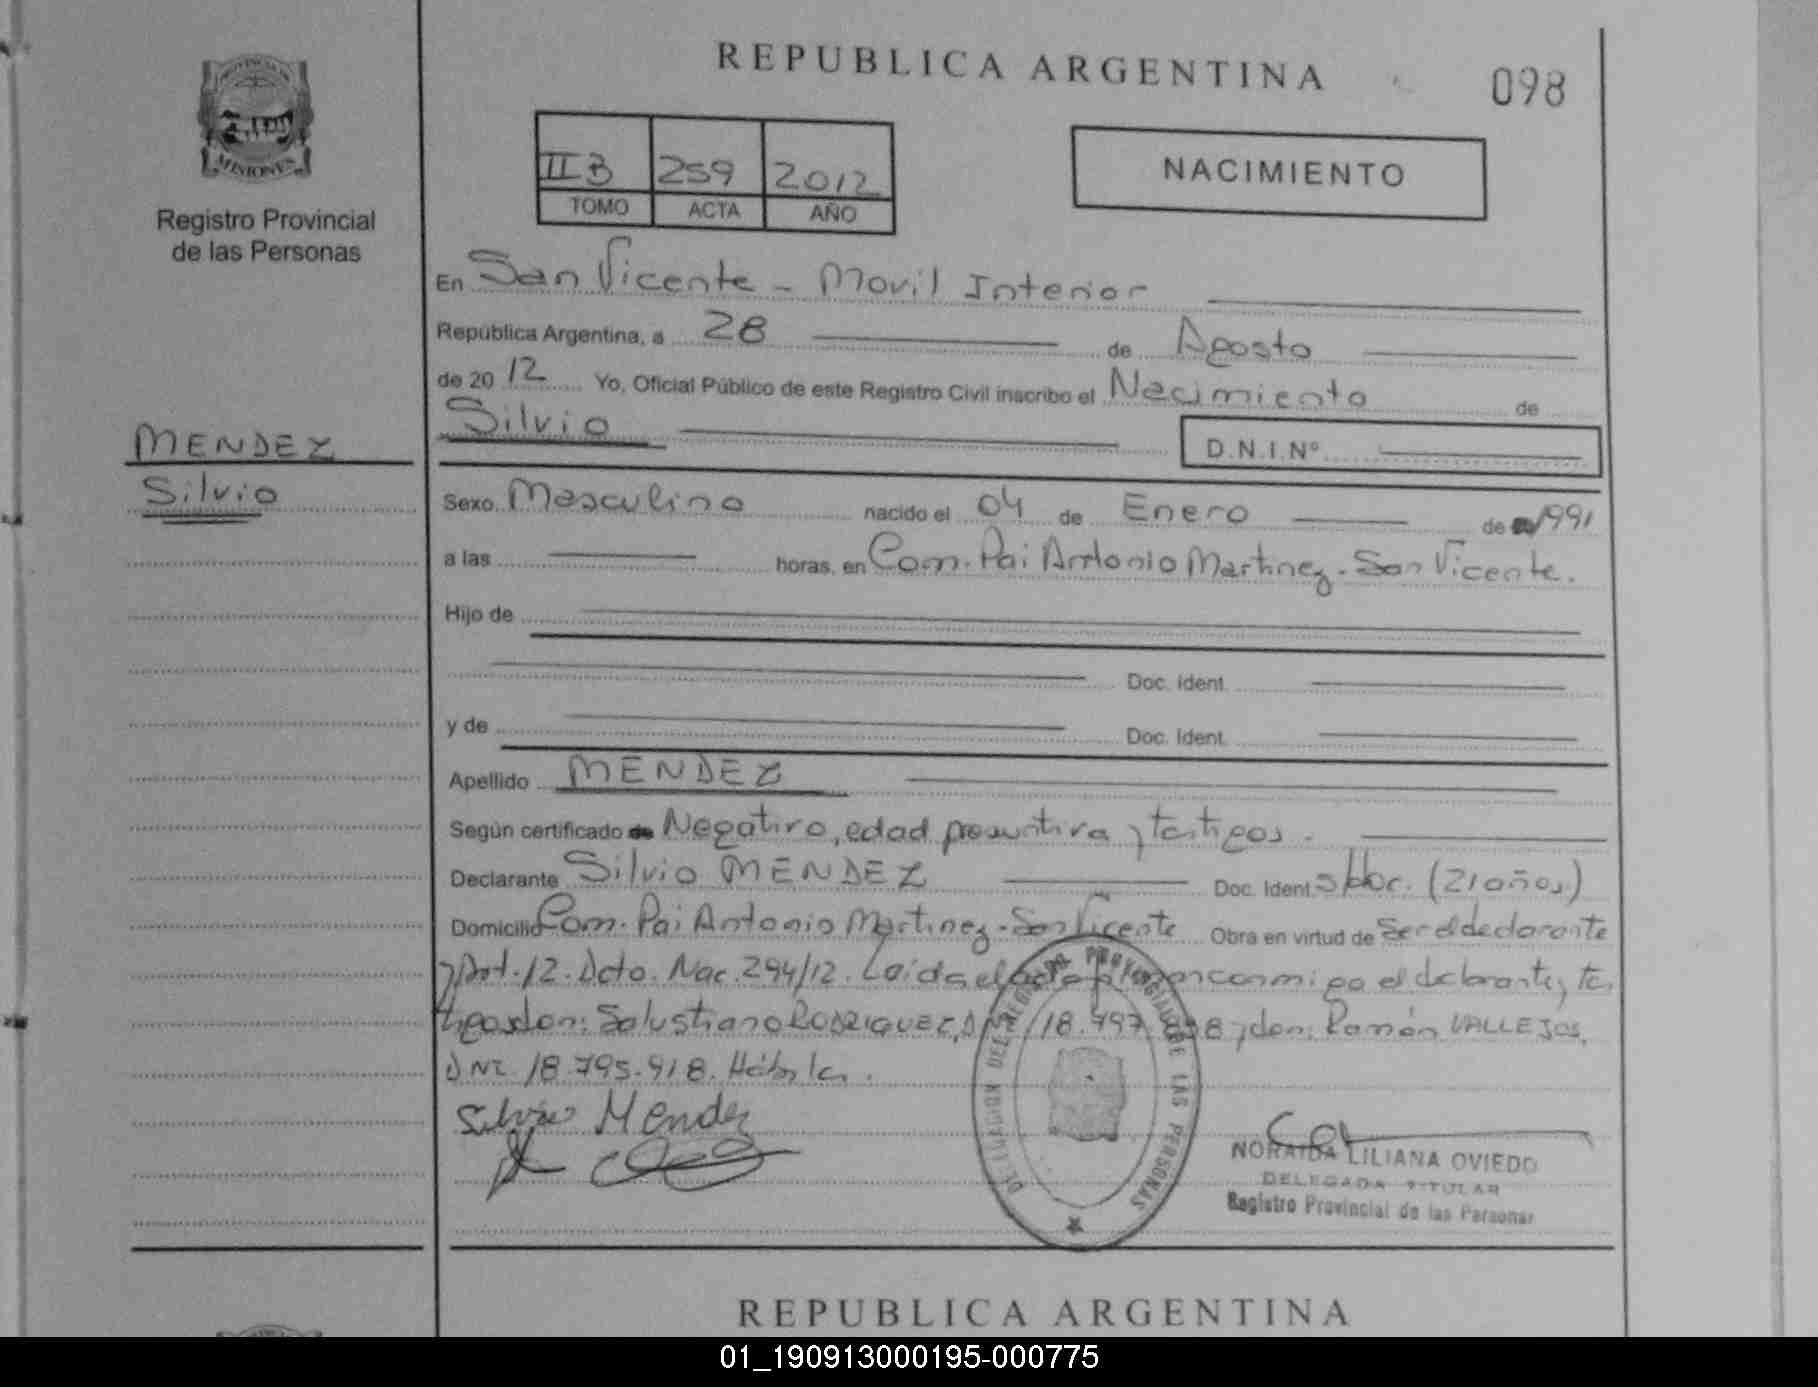 REPUBLICA ARGENTINA
098
PROVINCIA DE
MISIONES
Registro Provincial
de las Personas
II B 259 2012
TOMO ACTA AÑO
NACIMIENTO
En San Vicente - Movil Interior
República Argentina, a 28 de Agosto
de 2012 Yo, Oficial Público de este Registro Civil inscribo el Nacimiento de
Silvio D.N.I.Nº
MENDEZ
Silvio
Sexo Masculino nacido el 04 de Enero de 1991
a las horas, en Com. Pai Antonio Martinez - San Vicente.
Hijo de
Doc. Ident.
y de Doc. Ident.
Apellido MENDEZ
Según certificado de Negativo, edad presuntiva y testigos.
Declarante Silvio MENDEZ Doc. Ident. s/doc. (21 años)
Domicilio Com. Pai Antonio Martinez - San Vicente Obra en virtud de Ser el declarante
y Art. 12. Dcto. Nac. 294/12. Leida el acta firman conmigo el declarante y tes
tigos don: Salustiano RODRIGUEZ, DNI 18.797. y don: Ramón VALLEJOS,
DNI. 18.795.918. Hábiles.
Silvio Mendez
DELEGACION DEL REGISTRO PROVINCIAL DE LAS PERSONAS
NORAIDA LILIANA OVIEDO
DELEGADA TITULAR
Registro Provincial de las Personas
REPUBLICA ARGENTINA
01_190913000195-000775